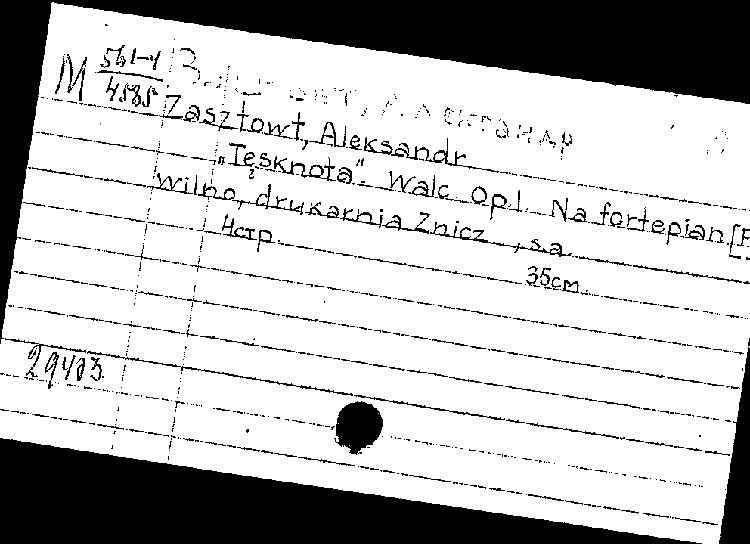 M 561-4
4585
Zasztowt, Aleksandr
„Tęsknota". Walc Op.1. Na fortepian.[F
Wilno, drukarnia Znicz, s.a.
4стр. 35см.
29403